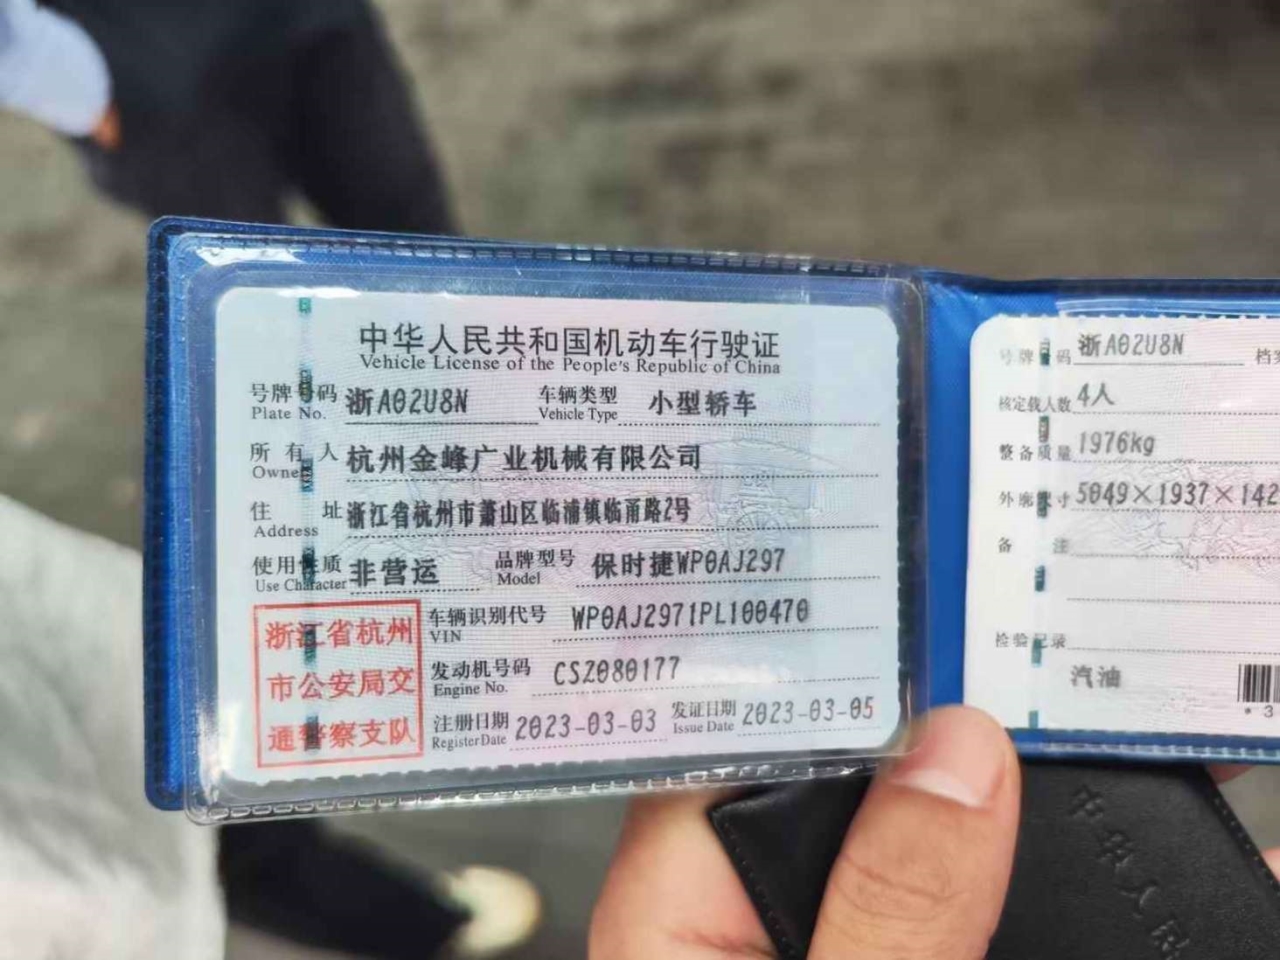 中华人民共和国机动车行驶证
Vehicle License of the People's Republic of China
号牌号码 浙A02U8N 车辆类型 小型轿车
Plate No. Vehicle Type
所有人 杭州金峰广业机械有限公司
Owner
住址 浙江省杭州市萧山区临浦镇临甬路2号
Address
使用性质 非营运 品牌型号 保时捷WP0AJ297
Use Character Model
浙江省杭州
市公安局交
通警察支队
车辆识别代号 WP0AJ2971PL100470
VIN
发动机号码 CS2080177
Engine No.
注册日期 2023-03-03 发证日期 2023-03-05
Register Date Issue Date
号牌号码 浙A02U8N 档
核定载人数 4人
整备质量 1976kg
外廓尺寸 5049×1937×142
备注
检验记录
汽油
* 3
中华人民